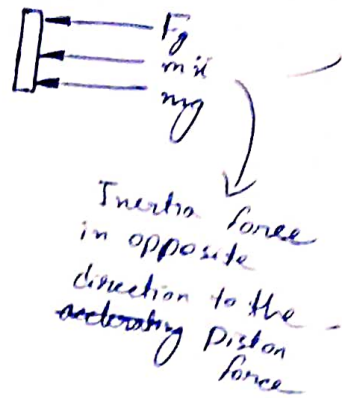 Fg
mẍ
mg
Inertia force
in opposite
direction to the
accelerating Piston
force